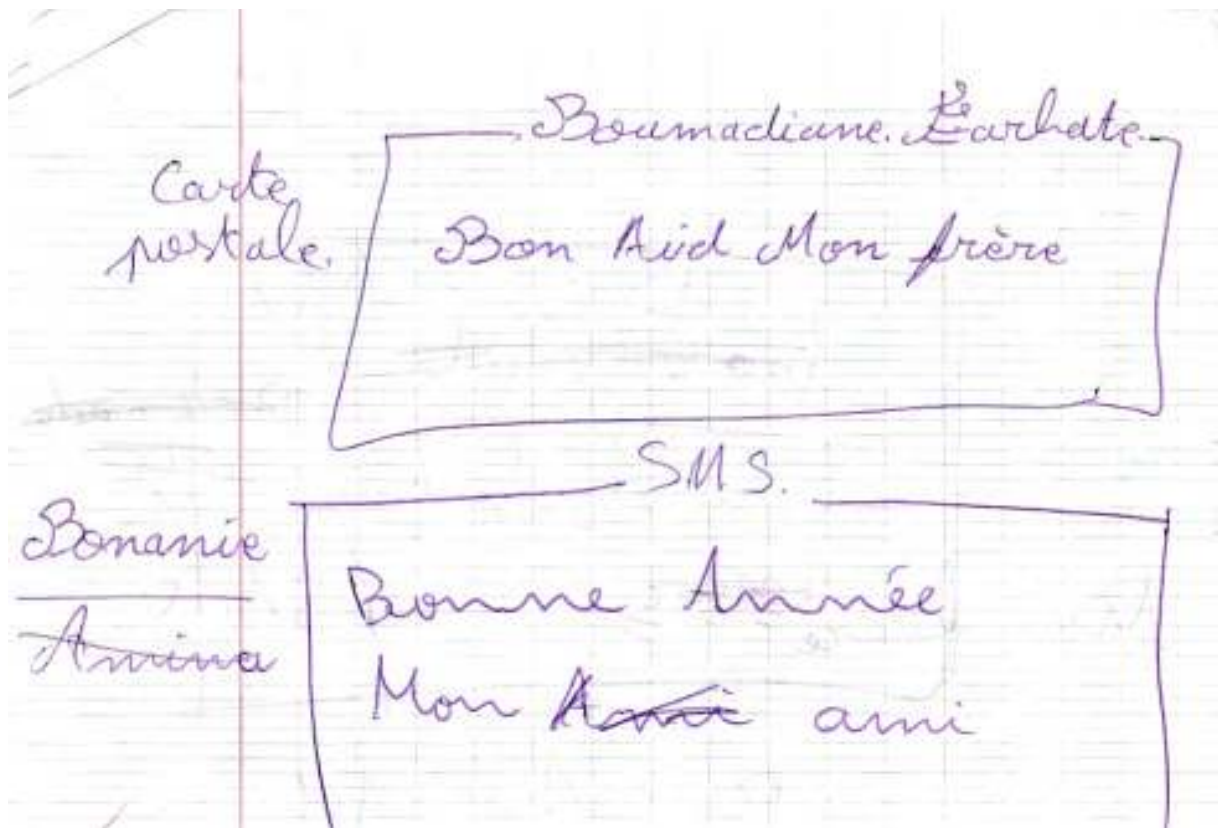 Boumadiane. Larhate.
Carte
postale.
Bon Aid Mon frère
S.M.S.
Bonanie
Amina
Bonne Année
Mon Ami ami